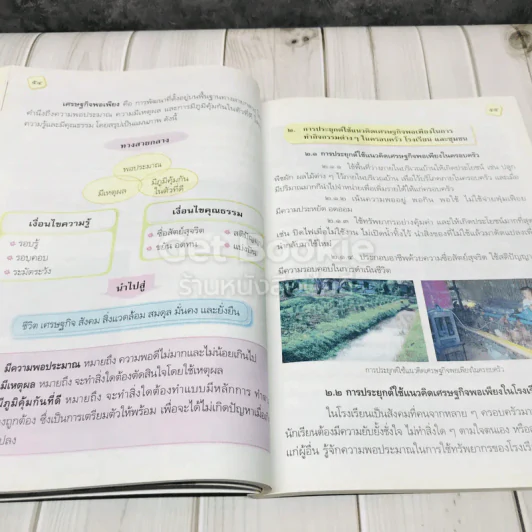 ๕๔
เศรษฐกิจพอเพียง คือ การพัฒนาที่ตั้งอยู่บนพื้นฐานทางสายกลาง
คำนึงถึงความพอประมาณ ความมีเหตุผล และการมีภูมิคุ้มกันในตัวที่ดี
ความรู้และมีคุณธรรม โดยสรุปเป็นแผนภาพ ดังนี้
ทางสายกลาง
พอประมาณ
มีเหตุผล
มีภูมิคุ้มกัน
ในตัวที่ดี
เงื่อนไขความรู้
รอบรู้
รอบคอบ
ระมัดระวัง
เงื่อนไขคุณธรรม
ซื่อสัตย์สุจริต
สติปัญญา
ขยัน อดทน
แบ่งปัน
นำไปสู่
ชีวิต เศรษฐกิจ สังคม สิ่งแวดล้อม สมดุล มั่นคง และยั่งยืน
มีความพอประมาณ หมายถึง ความพอดีไม่มากและไม่น้อยเกินไป
มีเหตุผล หมายถึง จะทำสิ่งใดต้องตัดสินใจโดยใช้เหตุผล
มีภูมิคุ้มกันที่ดี หมายถึง จะทำสิ่งใดต้องทำแบบมีหลักการ
ถูกต้อง ซึ่งเป็นการเตรียมตัวให้พร้อม เพื่อจะได้ไม่เกิดปัญหาเมื่อ
๕๕
๒. การประยุกต์ใช้แนวคิดเศรษฐกิจพอเพียงในการ
ทำกิจกรรมต่าง ๆ ในครอบครัว โรงเรียน และชุมชน
๒.๑ การประยุกต์ใช้แนวคิดเศรษฐกิจพอเพียงในครอบครัว
๒.๑.๑ ใช้พื้นที่ว่างภายในบริเวณบ้านให้เกิดประโยชน์ เช่น ปลูก
พืชผัก ผลไม้ต่าง ๆ ไว้ภายในบริเวณบ้าน เพื่อไว้บริโภคภายในครอบครัว และเมื่อ
มีปริมาณมากก็นำไปจำหน่ายเพื่อเพิ่มรายได้ให้แก่ครอบครัว
๒.๑.๒ เน้นความพออยู่ พอกิน พอใช้ ไม่ใช้จ่ายฟุ่มเฟือย
มีความประหยัด อดออม
๒.๑.๓ ใช้ทรัพยากรอย่างคุ้มค่า และให้เกิดประโยชน์มากที่สุด
เช่น ปิดไฟเมื่อไม่ใช้งาน ไม่เปิดน้ำทิ้งไว้ นำสิ่งของที่ไม่ใช้แล้วมาดัดแปลง
นำกลับมาใช้ใหม่
๒.๑.๔ ประกอบอาชีพด้วยความซื่อสัตย์สุจริต ใช้สติปัญญา
มีความรอบคอบในการดำเนินชีวิต
การประยุกต์ใช้แนวคิดเศรษฐกิจพอเพียงในครอบครัว
๒.๒ การประยุกต์ใช้แนวคิดเศรษฐกิจพอเพียงในโรงเรียน
ในโรงเรียนเป็นสังคมที่คนจากหลาย ๆ ครอบครัวมา
นักเรียนต้องมีความยับยั้งชั่งใจ ไม่ทำสิ่งใด ๆ ตามใจตนเอง หรือ
แก่ผู้อื่น รู้จักความพอประมาณในการใช้ทรัพยากรของโรงเรียน
Get Bookie
ร้านหนังสือ